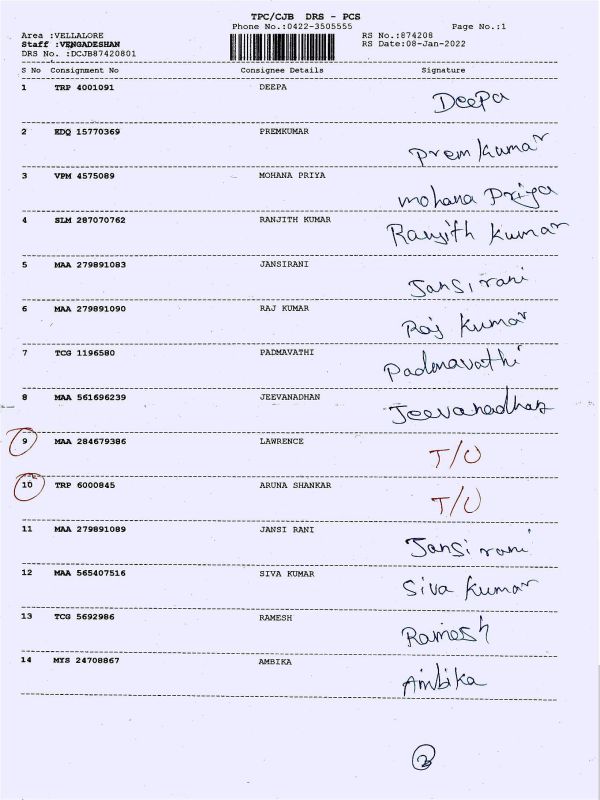 TPC/CJB DRS - PCS
Phone No.:0422-3505555 Page No.:1
Area :VELLALORE RS No.:874208
Staff :VENGADESHAN RS Date:08-Jan-2022
DRS No. :DCJB87420801
S No Consignment No Consignee Details Signature
1 TRP 4001091 DEEPA
Deepa
2 EDQ 15770369 PREMKUMAR
Prem kumar
3 VPM 4575089 MOHANA PRIYA
mohana Priya
4 SLM 287070762 RANJITH KUMAR
Ranjith kumar
5 MAA 279891083 JANSIRANI
Jansi rani
6 MAA 279891090 RAJ KUMAR
Raj kumar
7 TCG 1196580 PADMAVATHI
Padmavathi
8 MAA 561696239 JEEVANADHAN
Jeevanadhan
9 MAA 284679386 LAWRENCE
T/O
10 TRP 6000845 ARUNA SHANKAR
T/O
11 MAA 279891089 JANSI RANI
Jansi rani
12 MAA 565407516 SIVA KUMAR
Siva kumar
13 TCG 5692986 RAMESH
Ramesh
14 MYS 24708867 AMBIKA
Ambika